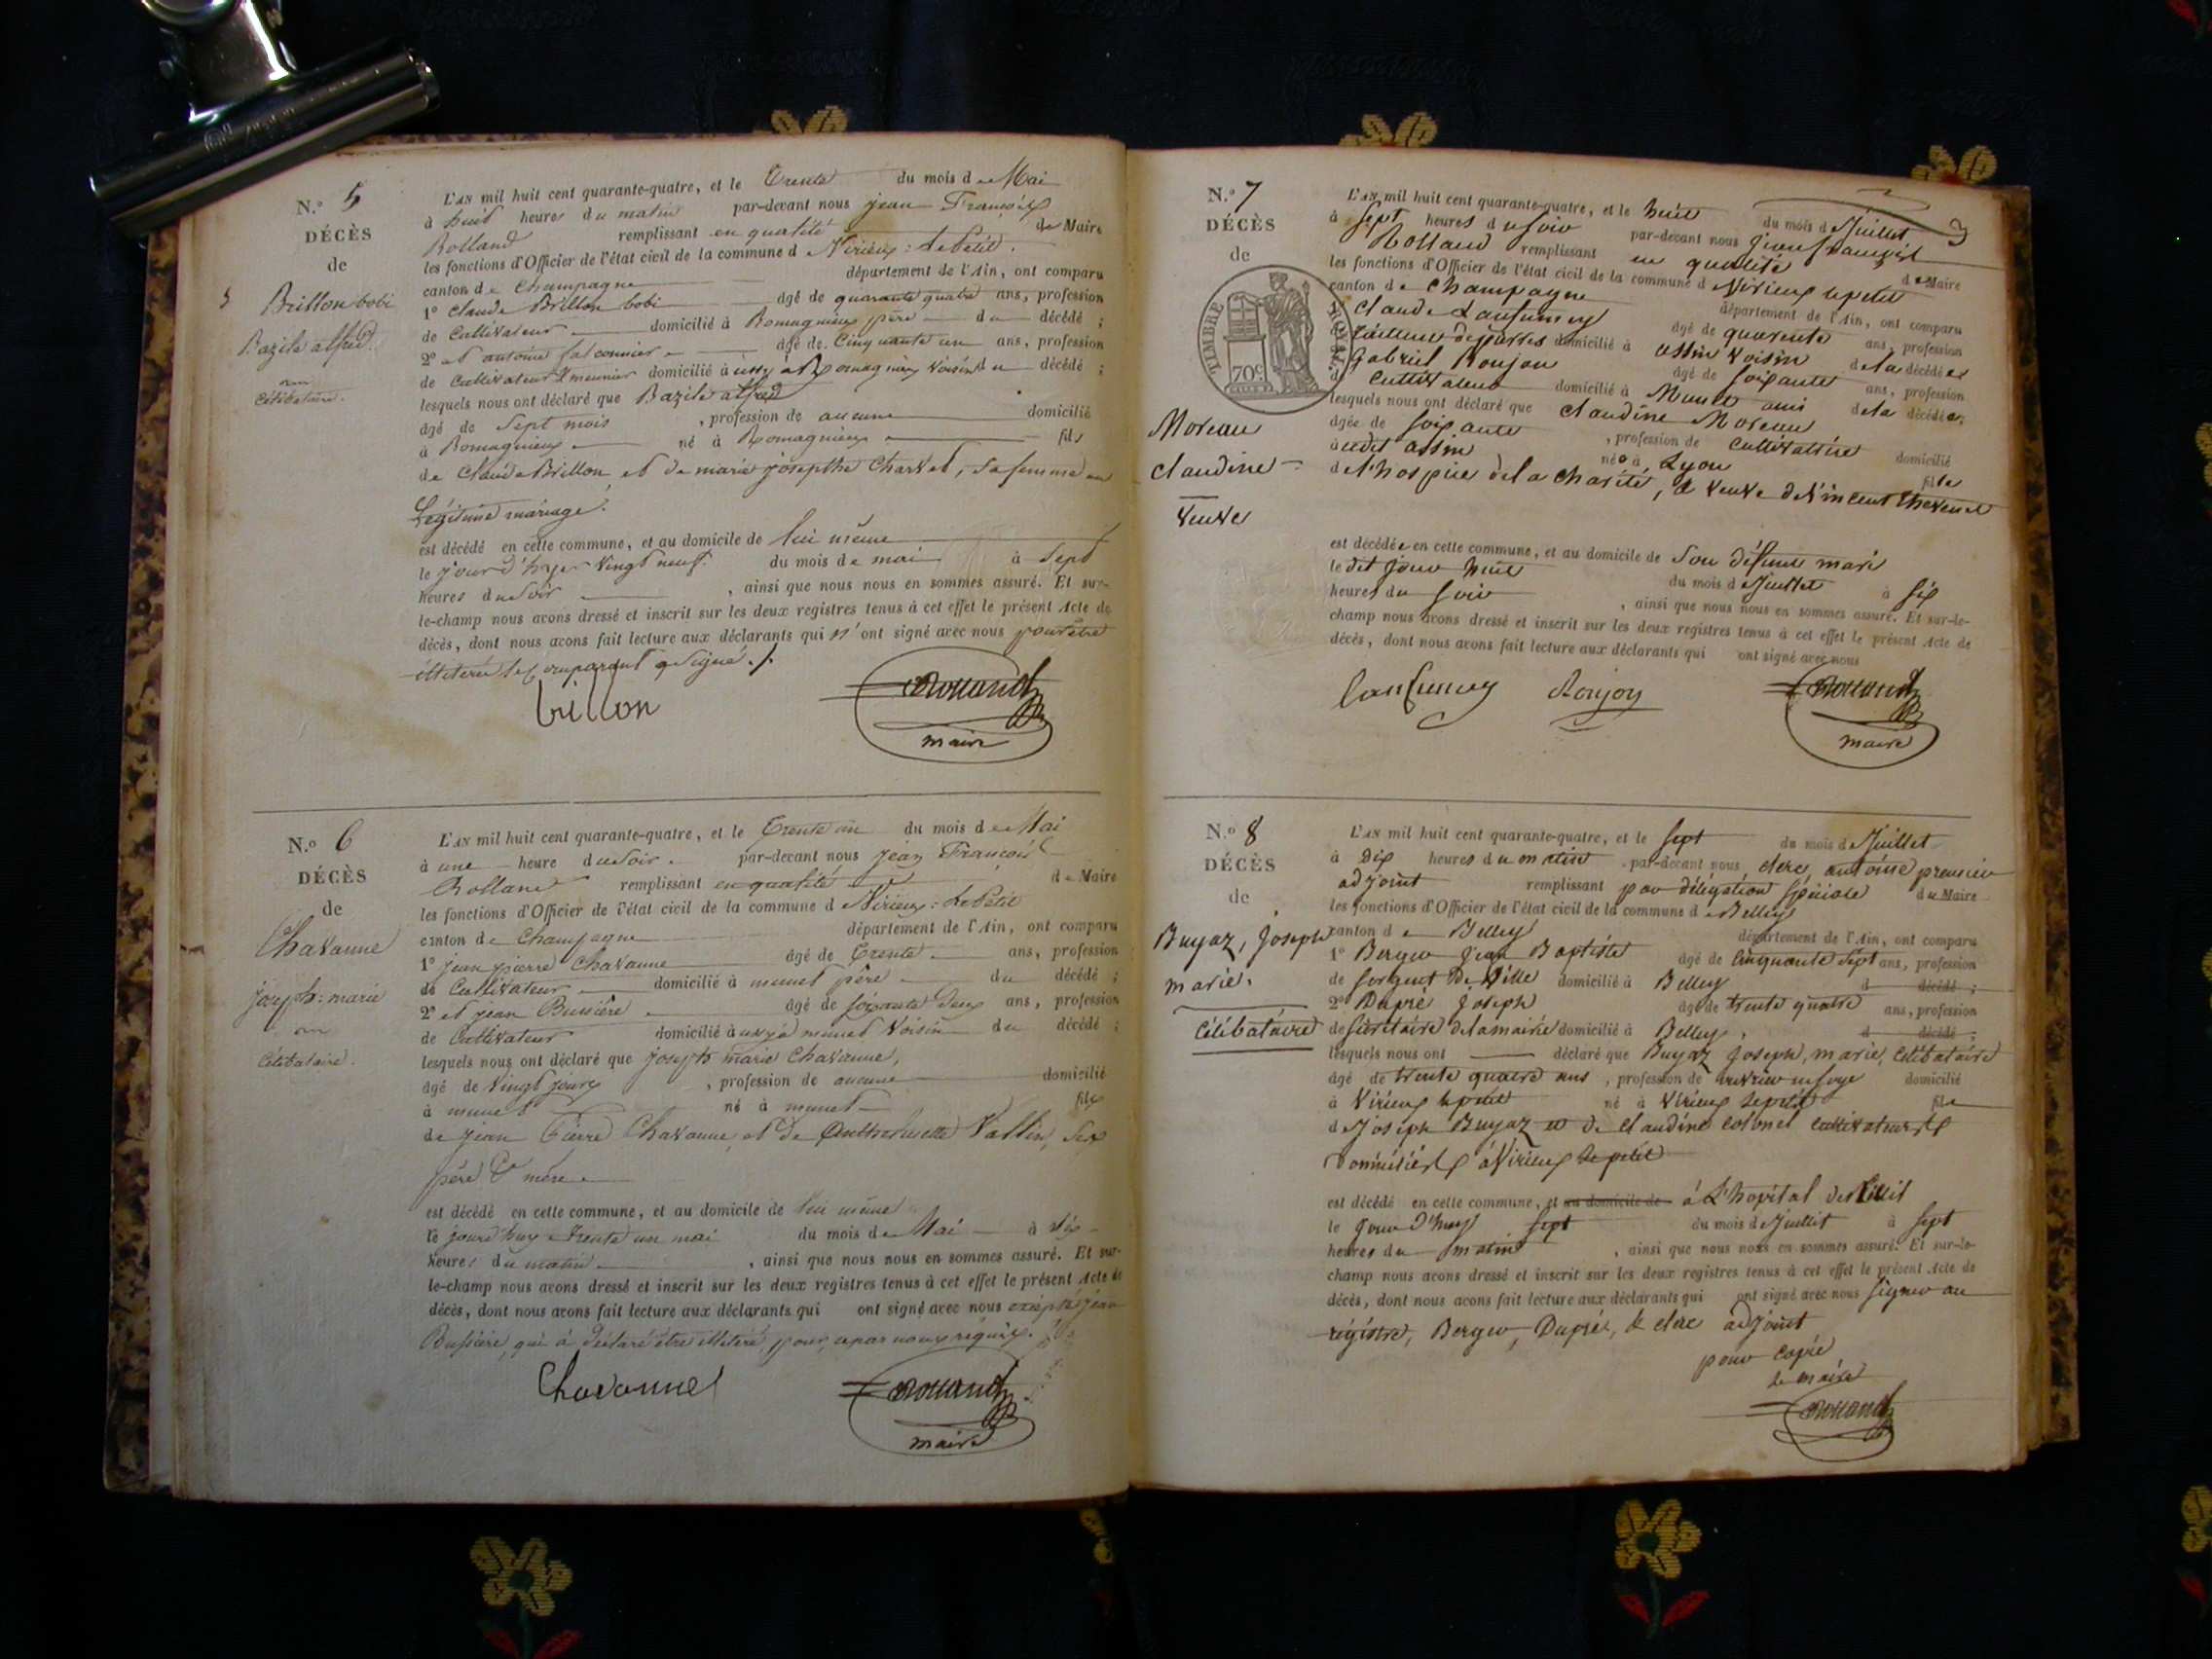 N.° 5
DÉCÈS
de
Brillon bobi
Bazile alfred.
célibataire.
L'AN mil huit cent quarante-quatre, et le Trente du mois de Mai
à huit heures du matin par-devant nous jean François
Rolland remplissant en qualité de Maire
les fonctions d'Officier de l'état civil de la commune d Virieux : le Petit.
canton de Champagne département de l'Ain, ont comparu
1° Claude Brillon bobi âgé de quarante quatre ans, profession
de Cultivateur domicilié à Romagnieux père du décédé ;
2° et antoine falconnier âgé de Cinquante un ans, profession
de Cultivateur & meunier domicilié à aussy à Romagnieux Voisin du décédé ;
lesquels nous ont déclaré que Bazile alfred
âgé de Sept mois , profession de aucune domicilié
à Romagnieux né à Romagnieux fils
de Claude Brillon et de marie josepthe Charvet, sa femme en
Légitime mariage.
est décédé en cette commune, et au domicile de lui même
le jour d'hyer vingt neuf du mois de mai à Sept
heures du Soir , ainsi que nous nous en sommes assuré. Et sur-
le-champ nous avons dressé et inscrit sur les deux registres tenus à cet effet le présent Acte de
décès, dont nous avons fait lecture aux déclarants qui n'ont signé avec nous pour être
Brillon
Rolland
maire
N.° 6
DÉCÈS
de
Chavanne
joseph-marie
célibataire.
L'AN mil huit cent quarante-quatre, et le Trente un du mois de Mai
à une heure du Soir. par-devant nous jean François
Rolland remplissant en qualité de Maire
les fonctions d'Officier de l'état civil de la commune d Virieux : le Petit
canton de Champagne département de l'Ain, ont comparu
1° jean pierre Chavanne âgé de Trente ans, profession
de Cultivateur domicilié à munet père du décédé ;
2° et jean Bussière âgé de soixante deux ans, profession
de Cultivateur domicilié à munet Voisin du décédé ;
lesquels nous ont déclaré que joseph marie Chavanne,
âgé de Vingt jours , profession de aucune domicilié
à munet né à munet fils
de jean Pierre Chavanne et de Vallin, Ses
père & mère
est décédé en cette commune, et au domicile de lui même
le jourd'huy Trente un mai du mois de Mai à dix
heures du matin , ainsi que nous nous en sommes assuré. Et sur-
le-champ nous avons dressé et inscrit sur les deux registres tenus à cet effet le présent Acte de
décès, dont nous avons fait lecture aux déclarants qui ont signé avec nous excepté jean
Bussière, qui à déclaré être illétéré, pour, ce par nous requis.
Chavanne
Rolland
maire
N.° 7
DÉCÈS
de
TIMBRE ROYAL
70c
Moreau
Claudine
Veuve
L'AN mil huit cent quarante-quatre, et le huit du mois d Juillet
à Sept heures du Soir par-devant nous jean françois
Rolland remplissant en qualité de Maire
les fonctions d'Officier de l'état civil de la commune d Virieux le petit
canton de Champagne département de l'Ain, ont comparu
1° Claude Lanfumey âgé de quarente ans, profession
tailleur de pierres domicilié à assin Voisin de la décédée
Gabriel Roujon âgé de soixante ans, profession
de Cultivateur domicilié à Munet ami de la décédée;
lesquels nous ont déclaré que Claudine Moreau
âgée de soixante , profession de Cultivatrice domicilié
audit assin née à Lyon fille
de l'hospice de la charité, & veuve de Vincent Thevenet
est décédée en cette commune, et au domicile de Son défunt mari
le dit jour huit du mois d Juillet à six
heures du soir , ainsi que nous nous en sommes assuré. Et sur-le-
champ nous avons dressé et inscrit sur les deux registres tenus à cet effet le présent Acte de
décès, dont nous avons fait lecture aux déclarants qui ont signé avec nous
Lanfumey Roujon Rolland
maire
N.° 8
DÉCÈS
de
Buyaz, Joseph
marie.
Célibataire
L'AN mil huit cent quarante-quatre, et le sept du mois d Juillet
à Dix heures du matin par-devant nous clerc, antoine premier
adjoint remplissant par délégation spéciale du Maire
les fonctions d'Officier de l'état civil de la commune de Belley
canton de Belley département de l'Ain, ont comparu
1° Berger Jean Baptiste âgé de Cinquante sept ans, profession
de Sergent De Ville domicilié à Belley d décédé ;
2° Dupré Joseph âgé de trente quatre ans, profession
de Secrétaire de la mairie domicilié à Belley, d décédé ;
lesquels nous ont déclaré que Buyaz Joseph, marie, Célibataire
âgé de trente quatre ans , profession de ouvrier en soye domicilié
à Virieux le petit né à Virieux le petit fils
de Joseph Buyaz et de Claudine Colonel Cultivateurs
Domiciliés à Virieux le petit
est décédé en cette commune, et au domicile de à L'hopital de
le jour d'huy sept du mois d Juillet à sept
heures du matin , ainsi que nous nous en sommes assuré. Et sur-le-
champ nous avons dressé et inscrit sur les deux registres tenus à cet effet le présent Acte de
décès, dont nous avons fait lecture aux déclarants qui ont signé avec nous signer au
régistre, Berger, Dupré, & clerc adjoint
pour copie
le maire
Rolland